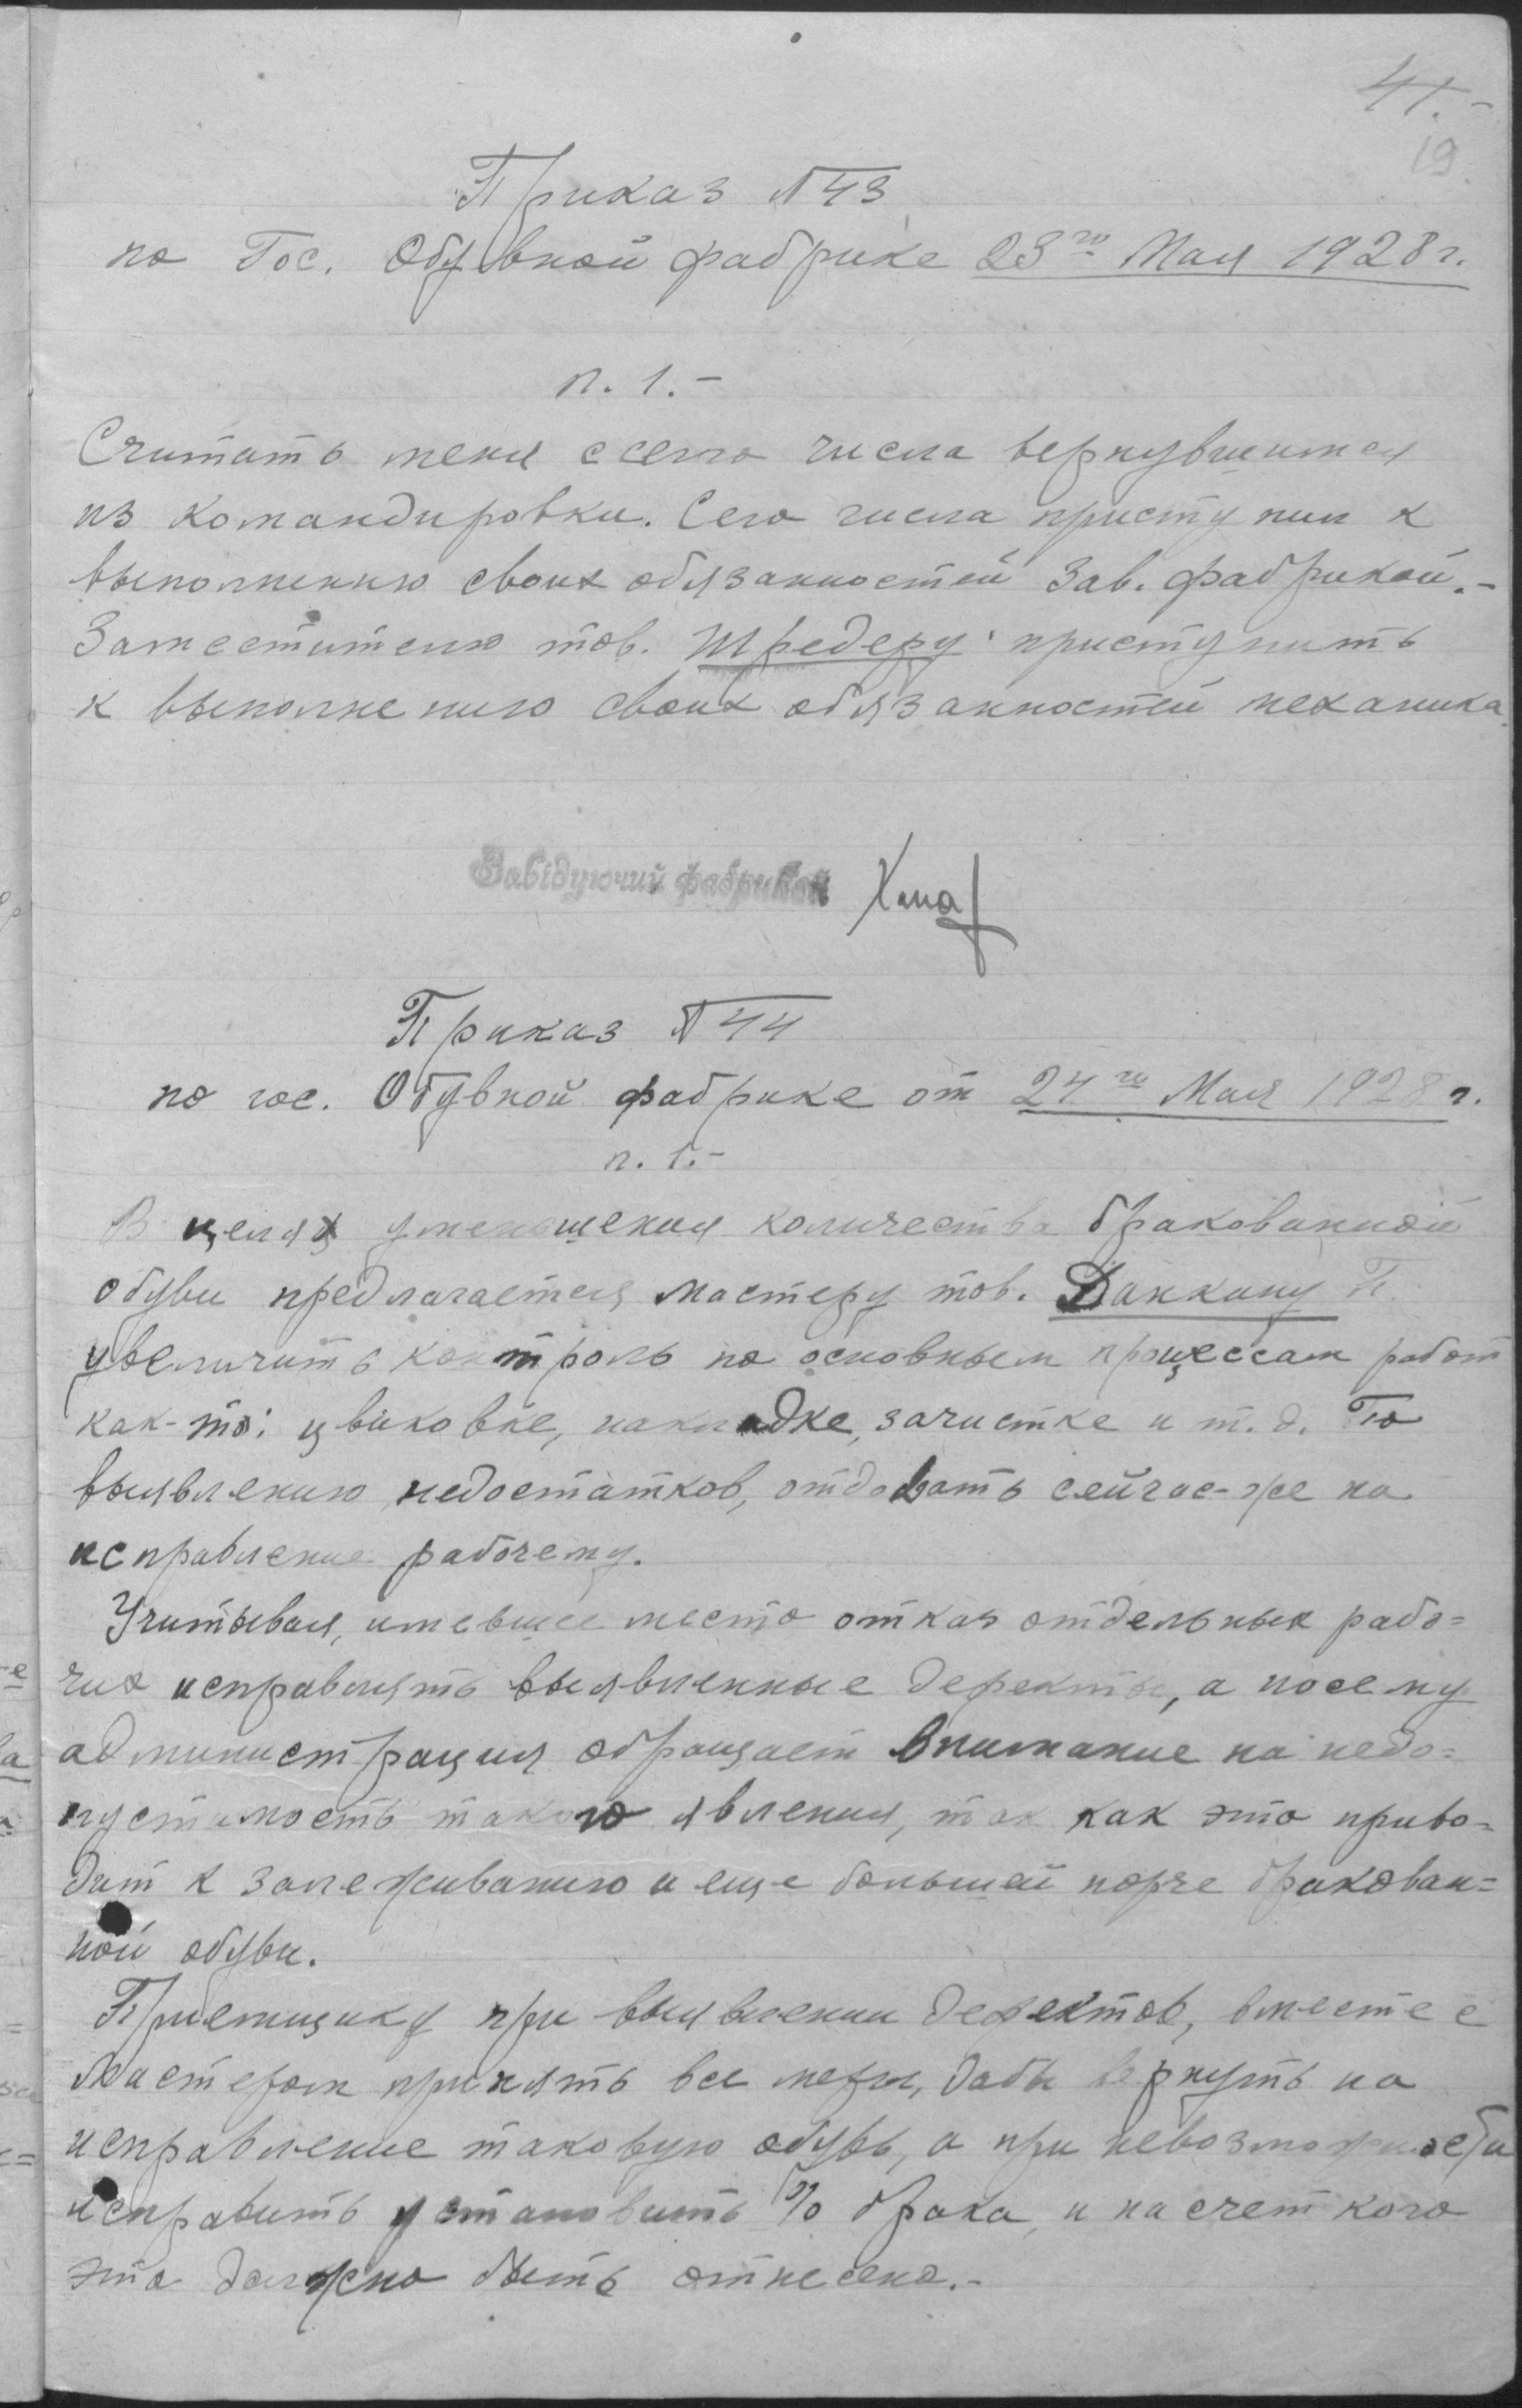 41.-
19
Приказ №43
по Гос. Обувной фабрике 23го Мая 1928 г.
п. 1.-
Считать меня с сего числа вернувшимся
из командировки. Сего числа приступил к
выполнению своих обязанностей Зав. фабрикой.-
Заместителю тов. Шредеру приступить
к выполнению своих обязанностей механика.
Завідуючий фабрикой
Приказ №44
по гос. Обувной фабрике от 24го Мая 1928 г.
п. 1.-
В целях уменьшения количества бракованной
обуви предлагается мастеру тов. Данкину П.
увеличить контроль по основным процессам работ
как-то: цвиковке, накладке, зачистке и т.д. По
выявлению недостатков, отдавать сейчас-же на
исправление рабочему.
Учитывая, имевшее место отказ отдельных рабо=
чих исправлять выявленные дефекты, а посему
администрация обращает внимание на недо=
пустимость такого явления, так как это приво=
дит к залеживанию и еще большей порче бракован=
ной обуви.
Приемщику при выявлении дефектов, вместе с
Мастером принять все меры, дабы вернуть на
исправление таковую обувь, а при невозможности
исправить установить % брака, и на счет кого
это должно быть отнесено.-